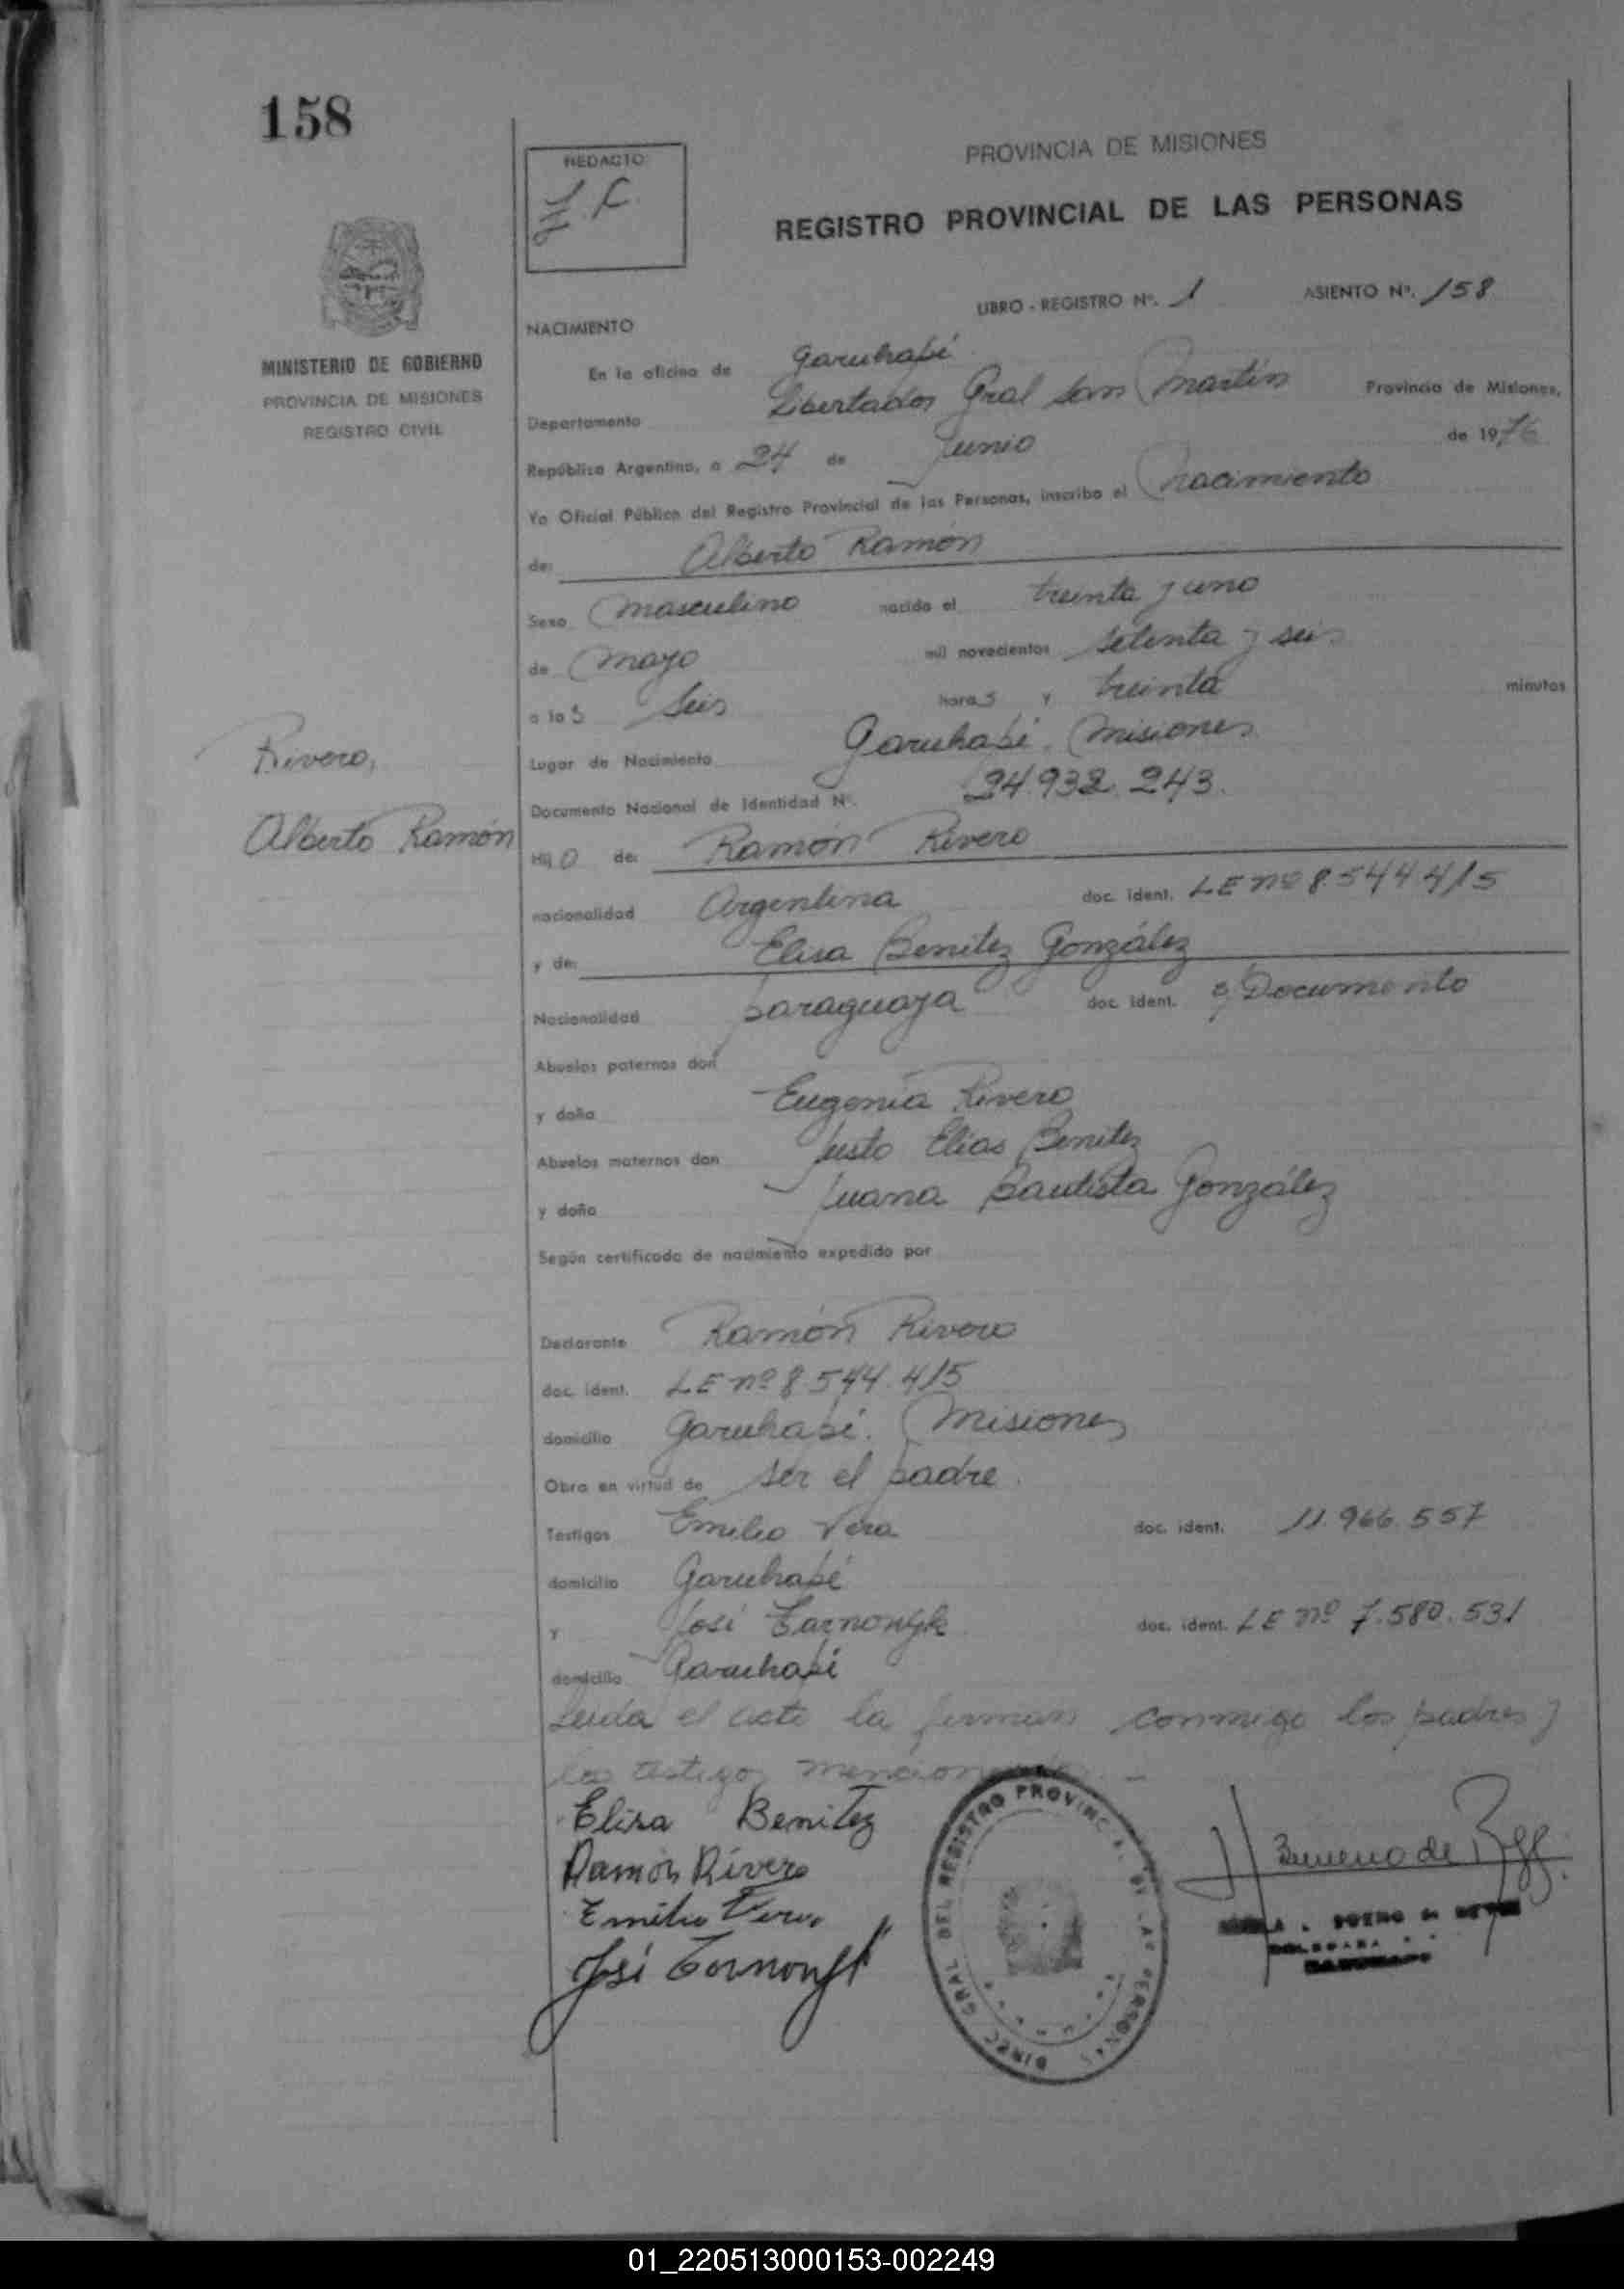 158
REDACTO:
PROVINCIA DE MISIONES
REGISTRO PROVINCIAL DE LAS PERSONAS
LIBRO - REGISTRO Nº. 1 ASIENTO Nº. 158
MINISTERIO DE GOBIERNO
PROVINCIA DE MISIONES
REGISTRO CIVIL
NACIMIENTO
En la oficina de Garuhapé
Departamento Libertador Gral San Martín Provincia de Misiones,
República Argentina, a 24 de Junio de 1976
Yo Oficial Público del Registro Provincial de las Personas, inscribo el nacimiento
de: Alberto Ramón
Sexo masculino nacido el treinta y uno
de mayo mil novecientos setenta y seis
a las seis horas y treinta minutos
Lugar de Nacimiento Garuhapé. Misiones
Documento Nacional de Identidad Nº. 24.932.243.
Rivero,
Alberto Ramón
Hijo de: Ramón Rivero
nacionalidad Argentina doc. ident. LE nº 8.544.415
y de: Elisa Benitez González
Nacionalidad paraguaya doc. ident. s/Documento
Abuelos paternos don
y doña Eugenia Rivero
Abuelos maternos don Justo Elias Benitez
y doña Juana Bautista González
Según certificado de nacimiento expedido por
Declarante Ramón Rivero
doc. ident. LE nº 8.544.415
domicilio Garuhapé. Misiones
Obra en virtud de ser el padre.
Testigos Emilio Vera doc. ident. 11.966.557
domicilio Garuhapé
y José doc. ident. LE nº 7.580.531
domicilio Garuhapé
Leída el acta la firman conmigo los padres y
los testigos mencionados. —
Elisa Benitez
Ramón Rivero
Emilio Vera
José
DIREC. GRAL DEL REGISTRO PROVINCIAL DE LAS PERSONAS
01_220513000153-002249